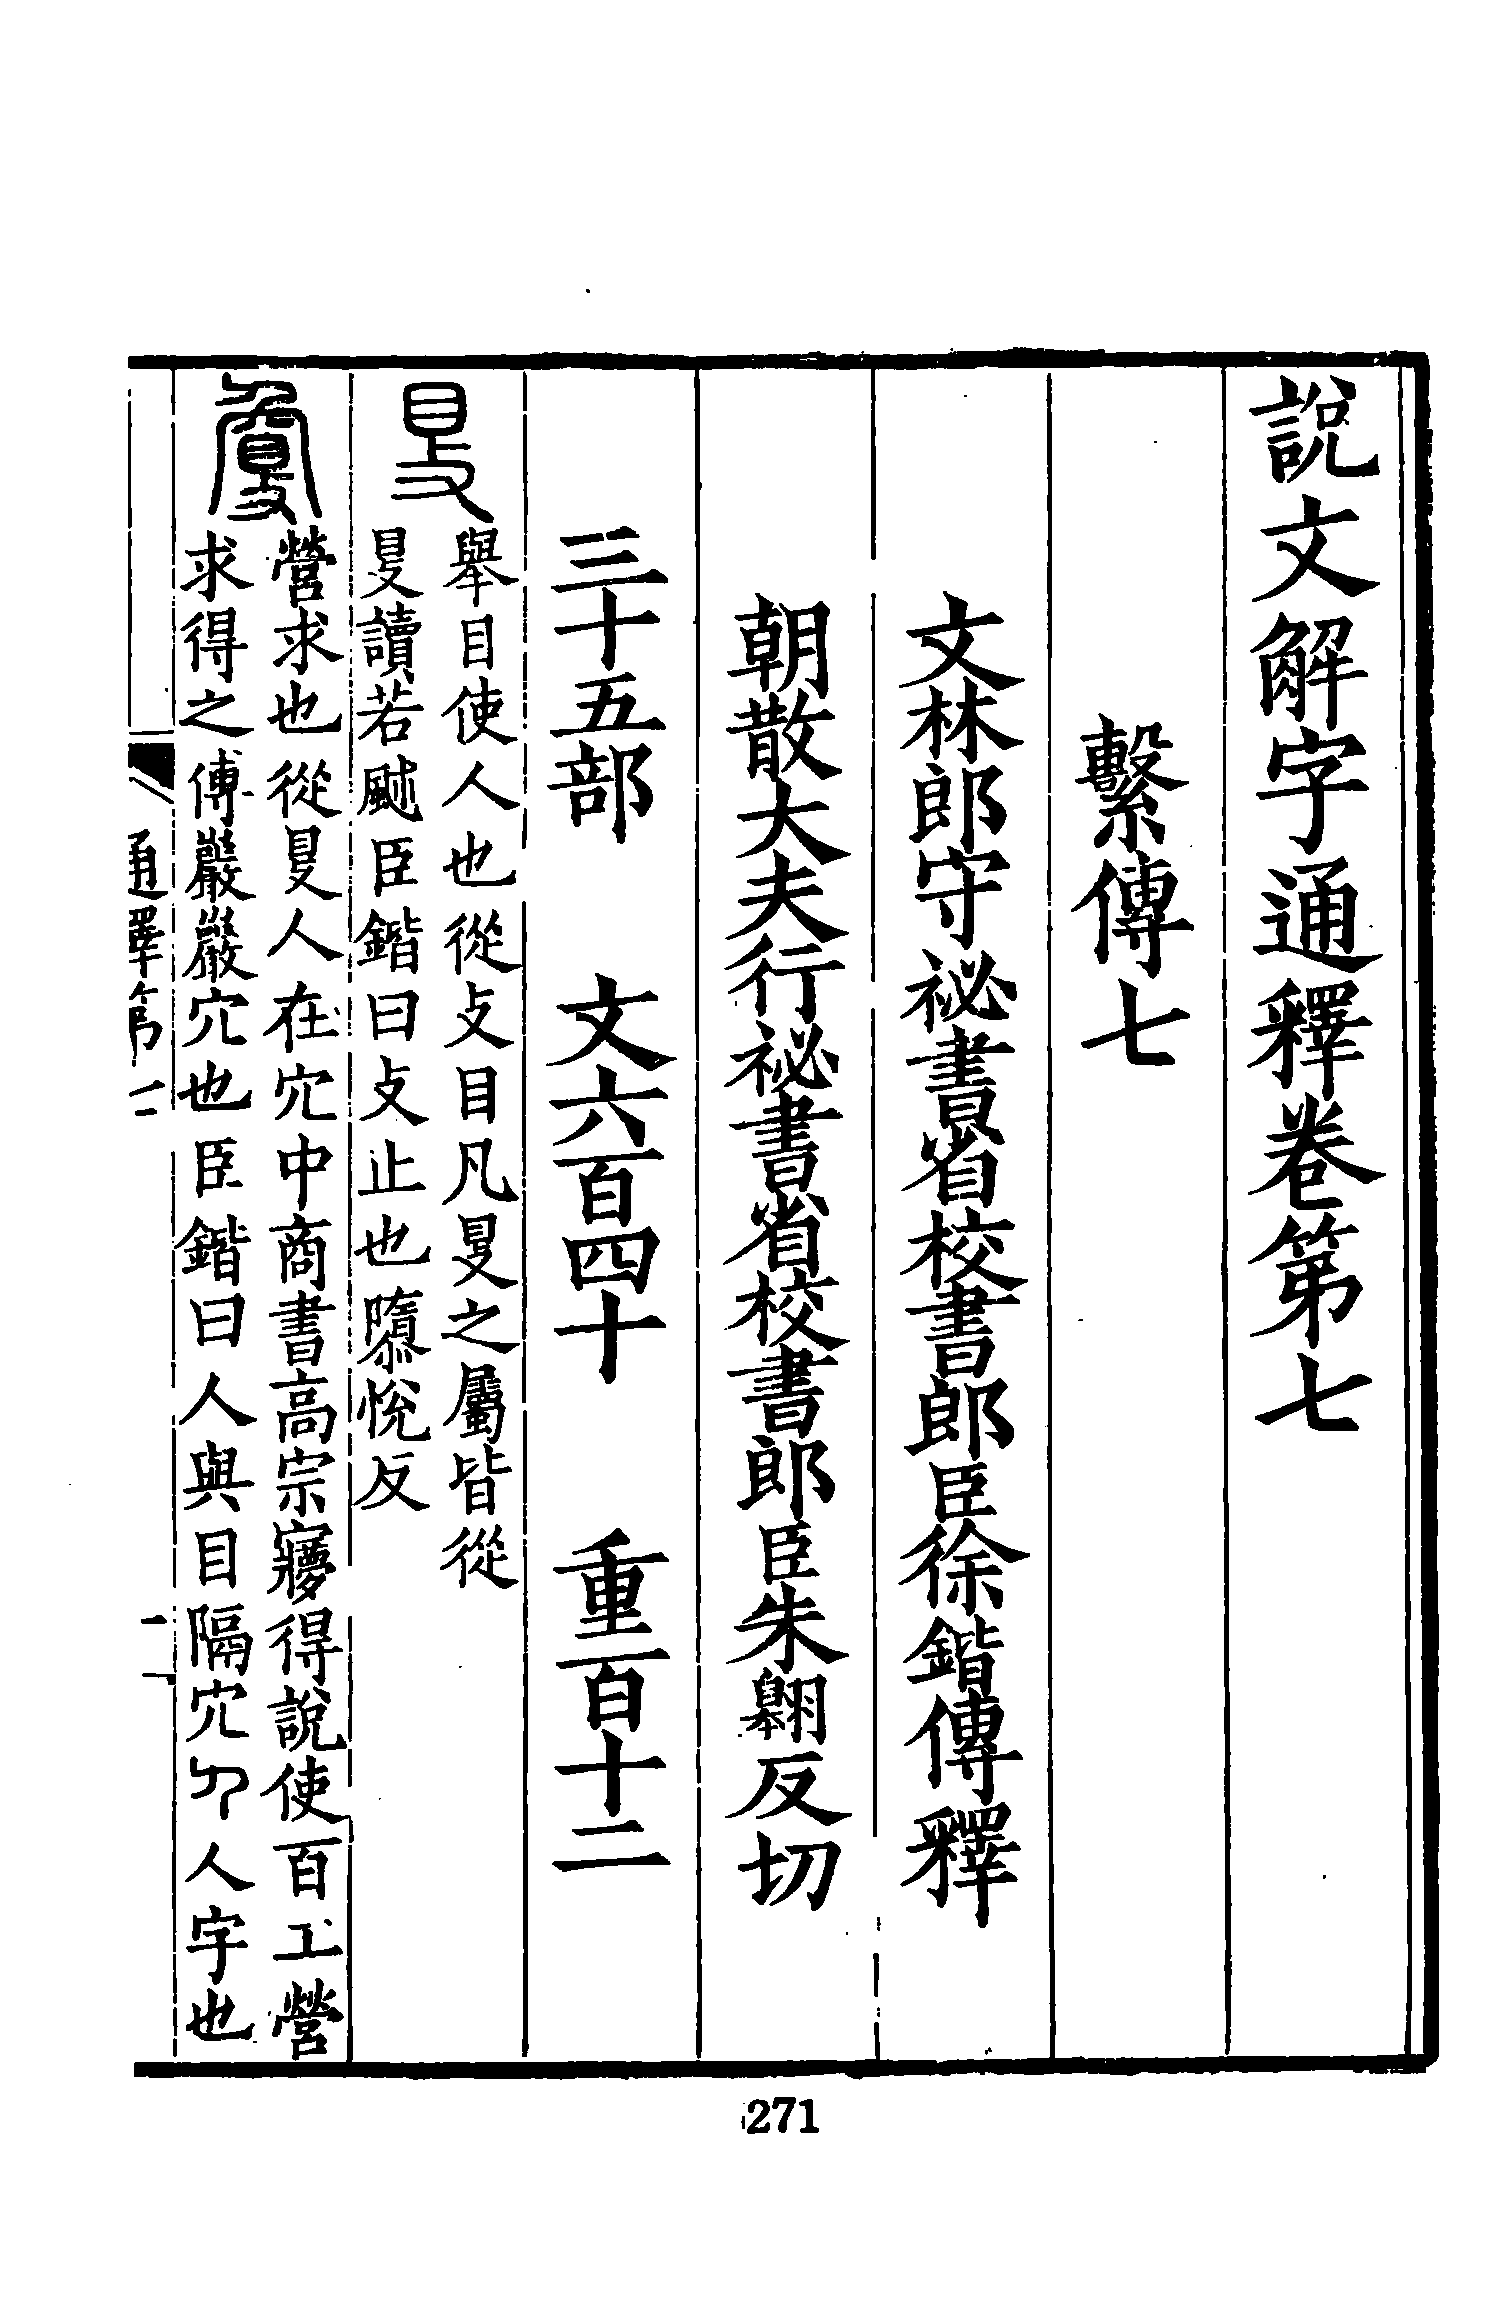 說文解字通釋卷第七
繫傳七
文林郎守祕書省校書郎臣徐鍇傳釋
朝散大夫行祕書省校書郎臣朱翱反切
三十五部 文六百四十 重百十二
舉目使人也從攴目凡𥄎之屬皆從
𥄎讀若䬂臣鍇曰攴止也隳悅反
敻
營求也從𥄎人在穴中商書高宗㝱得說使百工營
求得之傅巖巖穴也臣鍇曰人與目隔穴𠂊人字也
通釋第
271